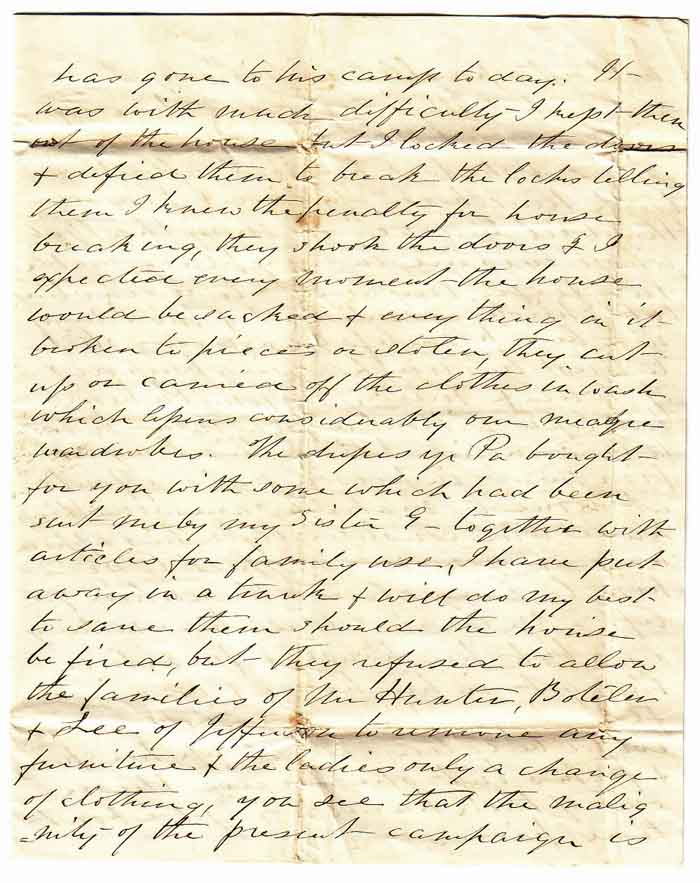 has gone to his camp to day. It
was with much difficulty I kept them
out of the house but I locked the doors
& defied them to break the locks telling
them I knew the penalty for house
breaking, they shook the doors & I
expected every moment the house
would be sacked & everything in it
broken to pieces or stolen, they cut
up or carried off the clothes in wash
which lessens considerably our meagre
wardrobes. The dresses yr Pa bought
for you with some which had been
sent me by my Sister E- together with
articles for family use, I have put
away in a trunk & will do my best
to save them should the house
be fired, but they refused to allow
the families of Mr Hunter, Boteler
& Lee of Jefferson to remove any
furniture & the ladies only a change
of clothing, you see that the malig
=nity of the present campaign is